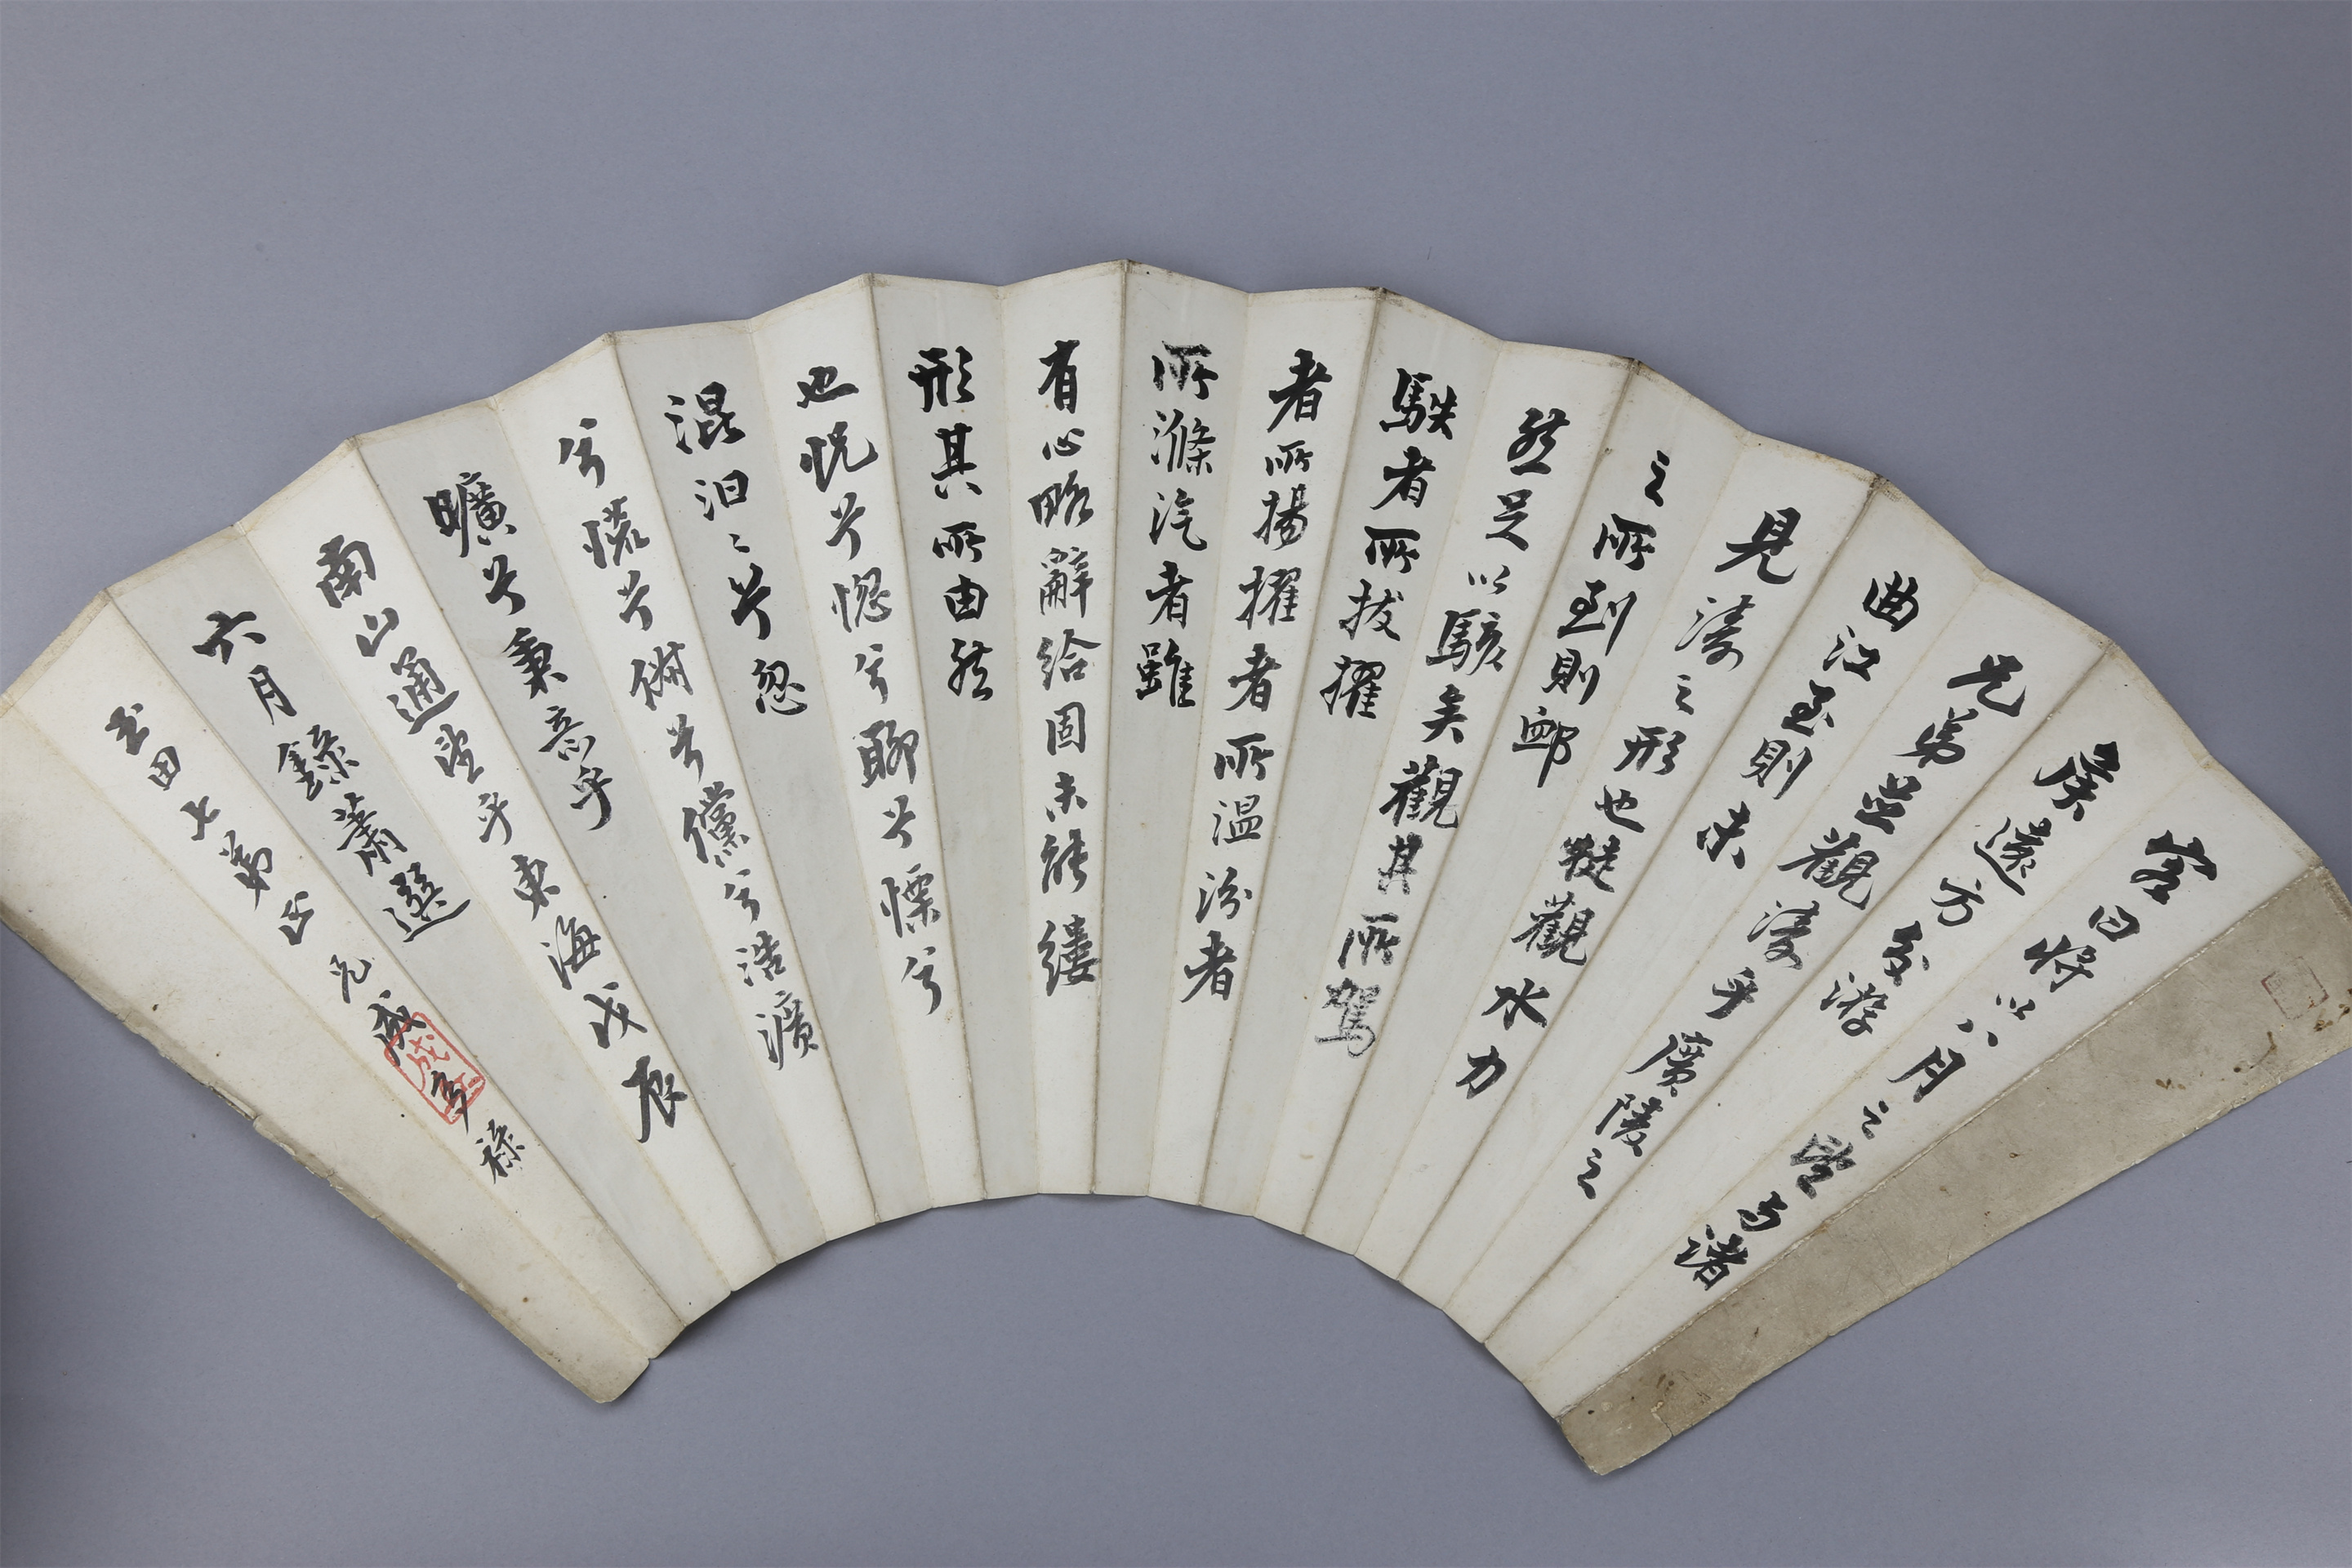 客曰將以八月之望與諸
矦遠方交游
兄弟並觀濤乎廣陵之
曲江至則未
見濤之形也徒觀水力
之所到則卹
然足以駭矣觀其所駕
軼者所拔擢
者所揚擢者所温汾者
所滌汔者雖
有心略辭給固未能縷
形其所由然
也怳兮惚兮聊兮慄兮
混汩〻兮忽
兮慌兮俶兮儻兮浩瀇
曠兮秉意乎
南山通望乎東海戊辰
六月錄蕭選
玉田七弟正 兄成亨祿